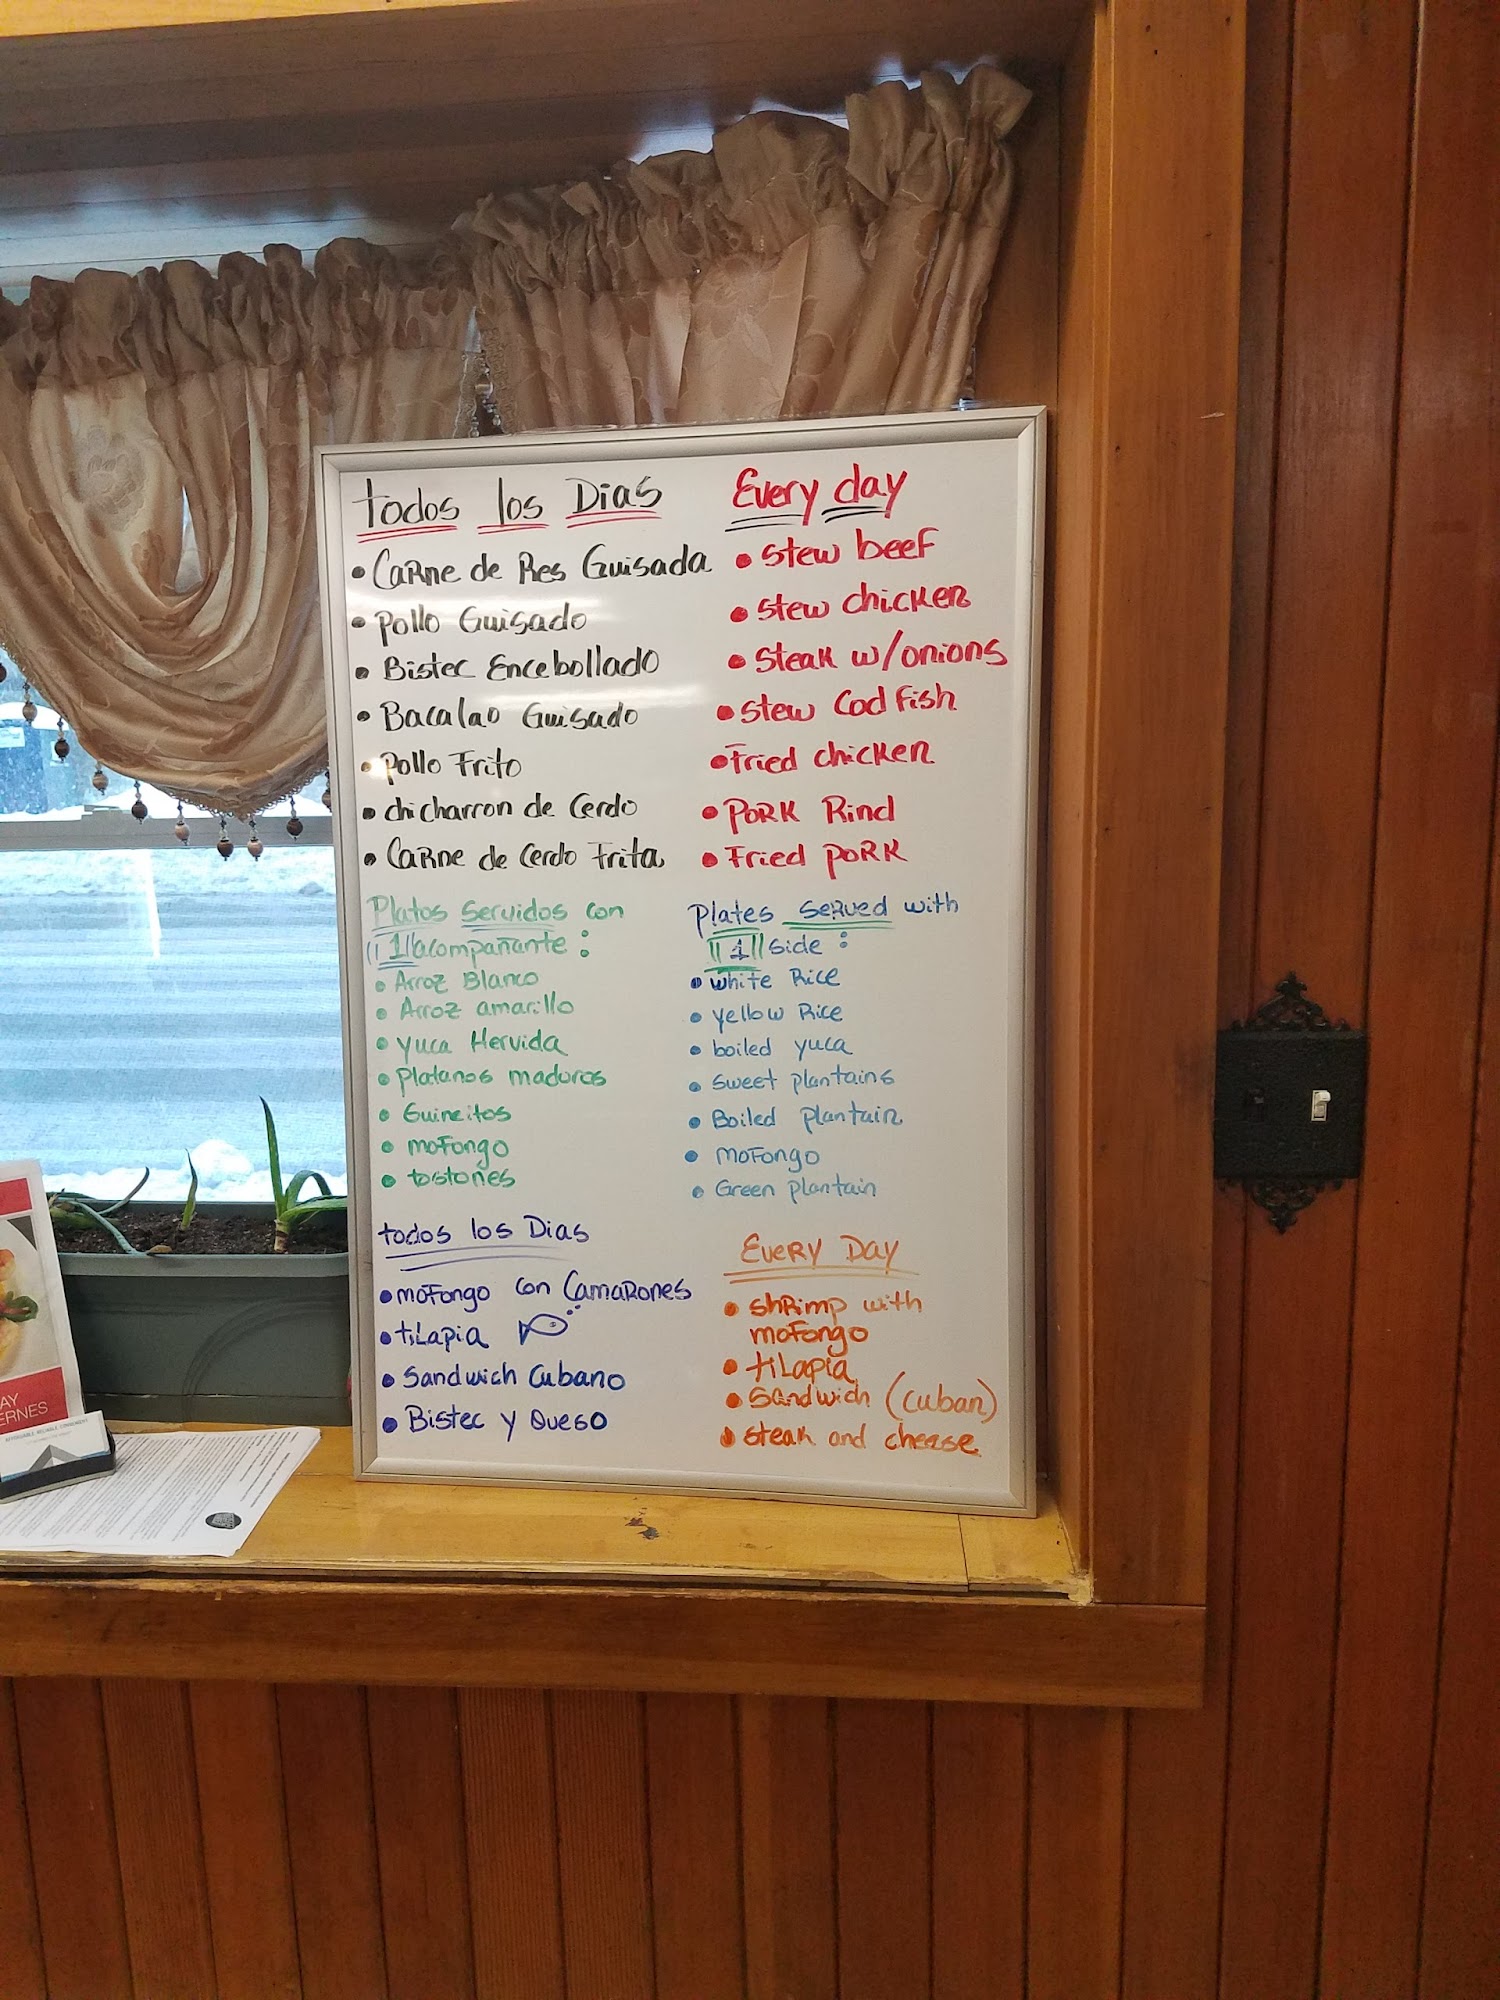 todos los Dias
• Carne de Res Guisada
• Pollo Guisado
• Bistec Encebollado
• Bacalao Guisado
• Pollo Frito
• chicharron de Cerdo
• Carne de Cerdo Frita
Platos servidos con
"1" acompañante:
• Arroz Blanco
• Arroz amarillo
• yuca Hervida
• Platanos maduros
• Guineitos
• moFongo
• tostones
todos los Dias
• moFongo con Camarones
• tiLapia
• Sandwich Cubano
• Bistec y Queso
Every day
• Stew beef
• Stew chicken
• Steak w/onions
• Stew Cod Fish
• Fried chicken
• Pork Rind
• Fried pork
Plates served with
"1" side:
• white Rice
• yellow Rice
• boiled yuca
• sweet plantains
• Boiled plantain
• moFongo
• Green plantain
Every Day
• shrimp with
moFongo
• tiLapia
• Sandwich (Cuban)
• steak and cheese
AY
ERNES